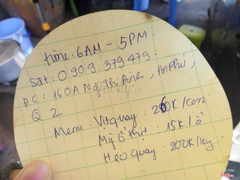 time: 6AM - 5PM
Sđt: 0909.379479.
ĐC: 160A Ng Thị Định, An Phú,
Q 2
Menu Vịt quay: 260K/con
15K/ổ
Heo quay 200K/kg